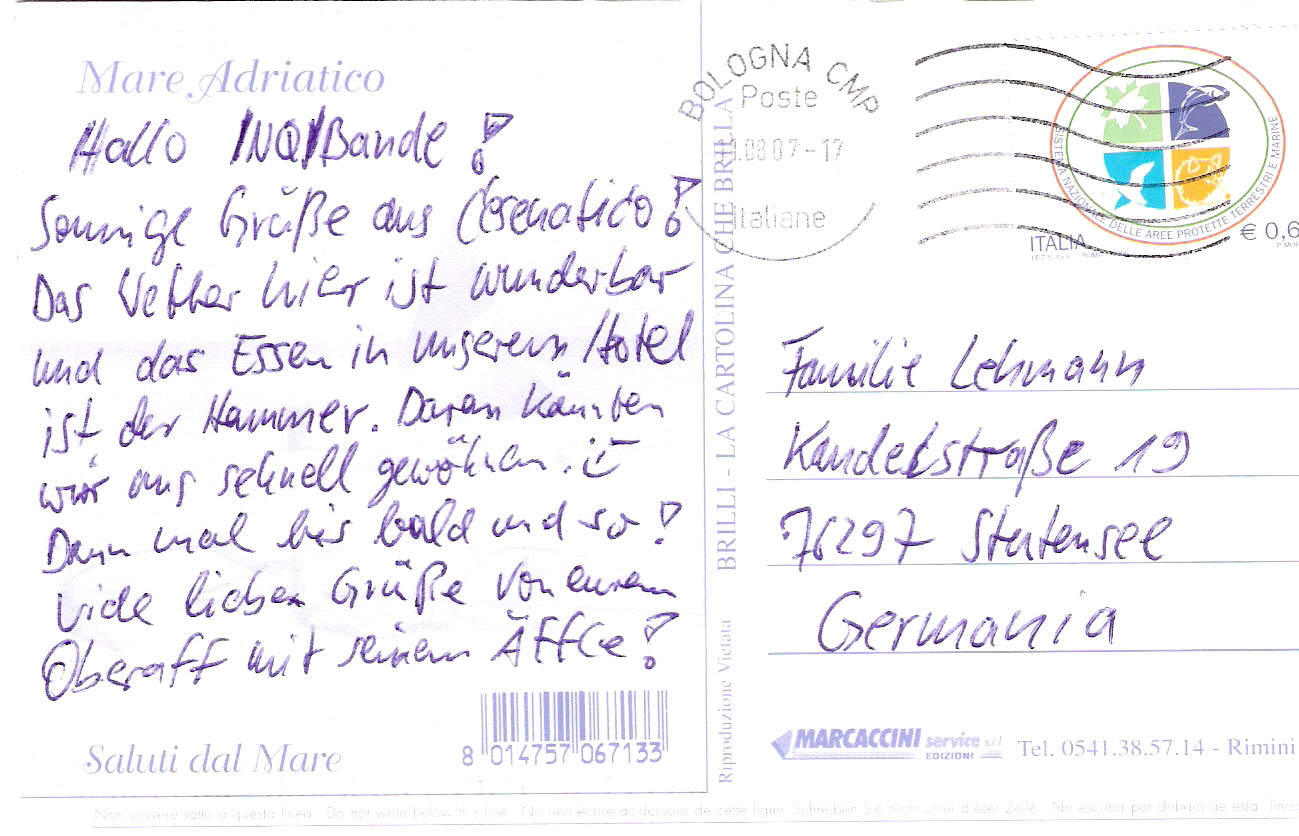 Mare Adriatico
Hallo INQ/Bande!
Sonnige Grüße aus Cesenatico!
Das Wetter hier ist wunderbar
und das Essen in unserem Hotel
ist der Hammer. Daran könnten
wir uns schnell gewöhnen.
Dann mal bis bald und so!
Viele lieben Grüße von eurem
Oberaff mit seinem Äffle!
Saluti dal Mare
8 014757 067133
BRILLI - LA CARTOLINA CHE BRILLA
Riproduzione Vietata
BOLOGNA CMP
Poste
.0807-17
Italiane
SISTEMA NAZIONALE DELLE AREE PROTETTE TERRESTRI E MARINE
ITALIA
€ 0,6
Familie Lehmann
Kandelstraße 19
76297 Stutensee
Germania
MARCACCINI service s.r.l.
EDIZIONI
Tel. 0541.38.57.14 - Rimini
Non scrivere sotto a questa linea - Do not write below this line - Ne rien écrire au dessous de cette ligne - Schreiben Sie nicht unter dieser Zeile - No escribir por debajo de esta linea